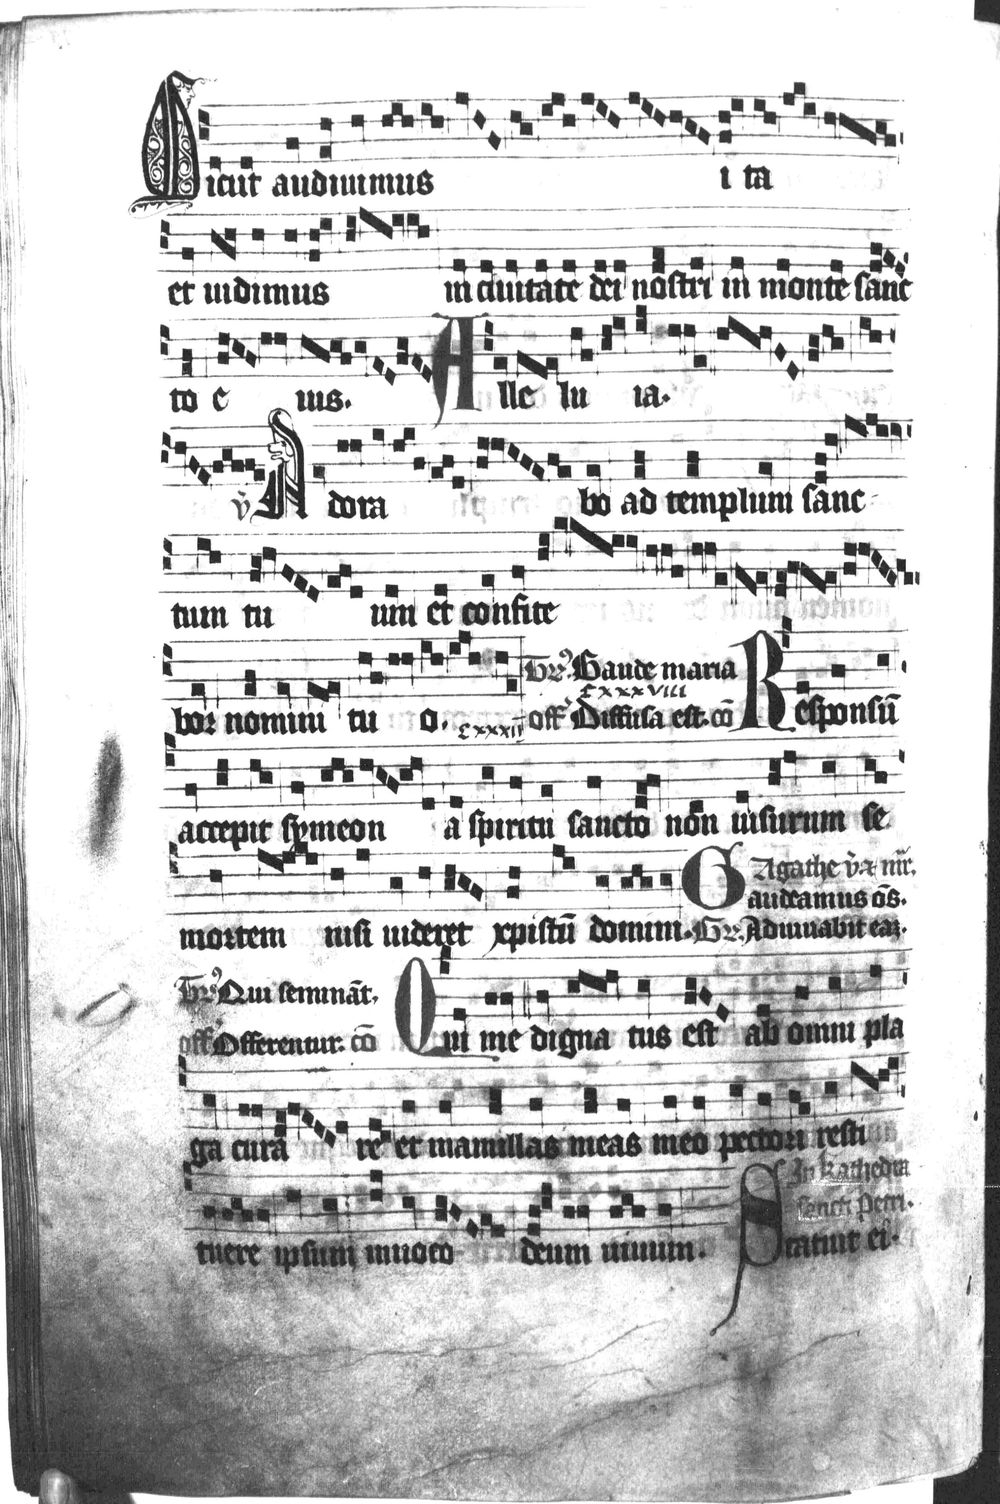 Sicut audiuimus i ta
et uidimus in ciuitate dei nostri in monte sanc
to e ius. Alle lu ia.
v̄ Adora bo ad templum sanc-
tum tu um et confite
bor nomini tu o. cxxxii Tr̄s Gaude maria cxxxviii off̄ Diffusa est. cō Responsū
accepit symeon a spiritu sancto non uisurum se
mortem nisi uideret xpistū dominū. Agathe v̄ & mr̄. Gaudeamus ōs. Gr̄. Adiuuabit eaz.
Tr̄s Qui seminā̄t,
off̄ Offerentur. cō Qui me digna tus est ab omni pla
ga cura re et mamillas meas meo pectori resti
tuere ipsum inuoco deum uiuum. In kathedra sancti Petri. Statuit ei.